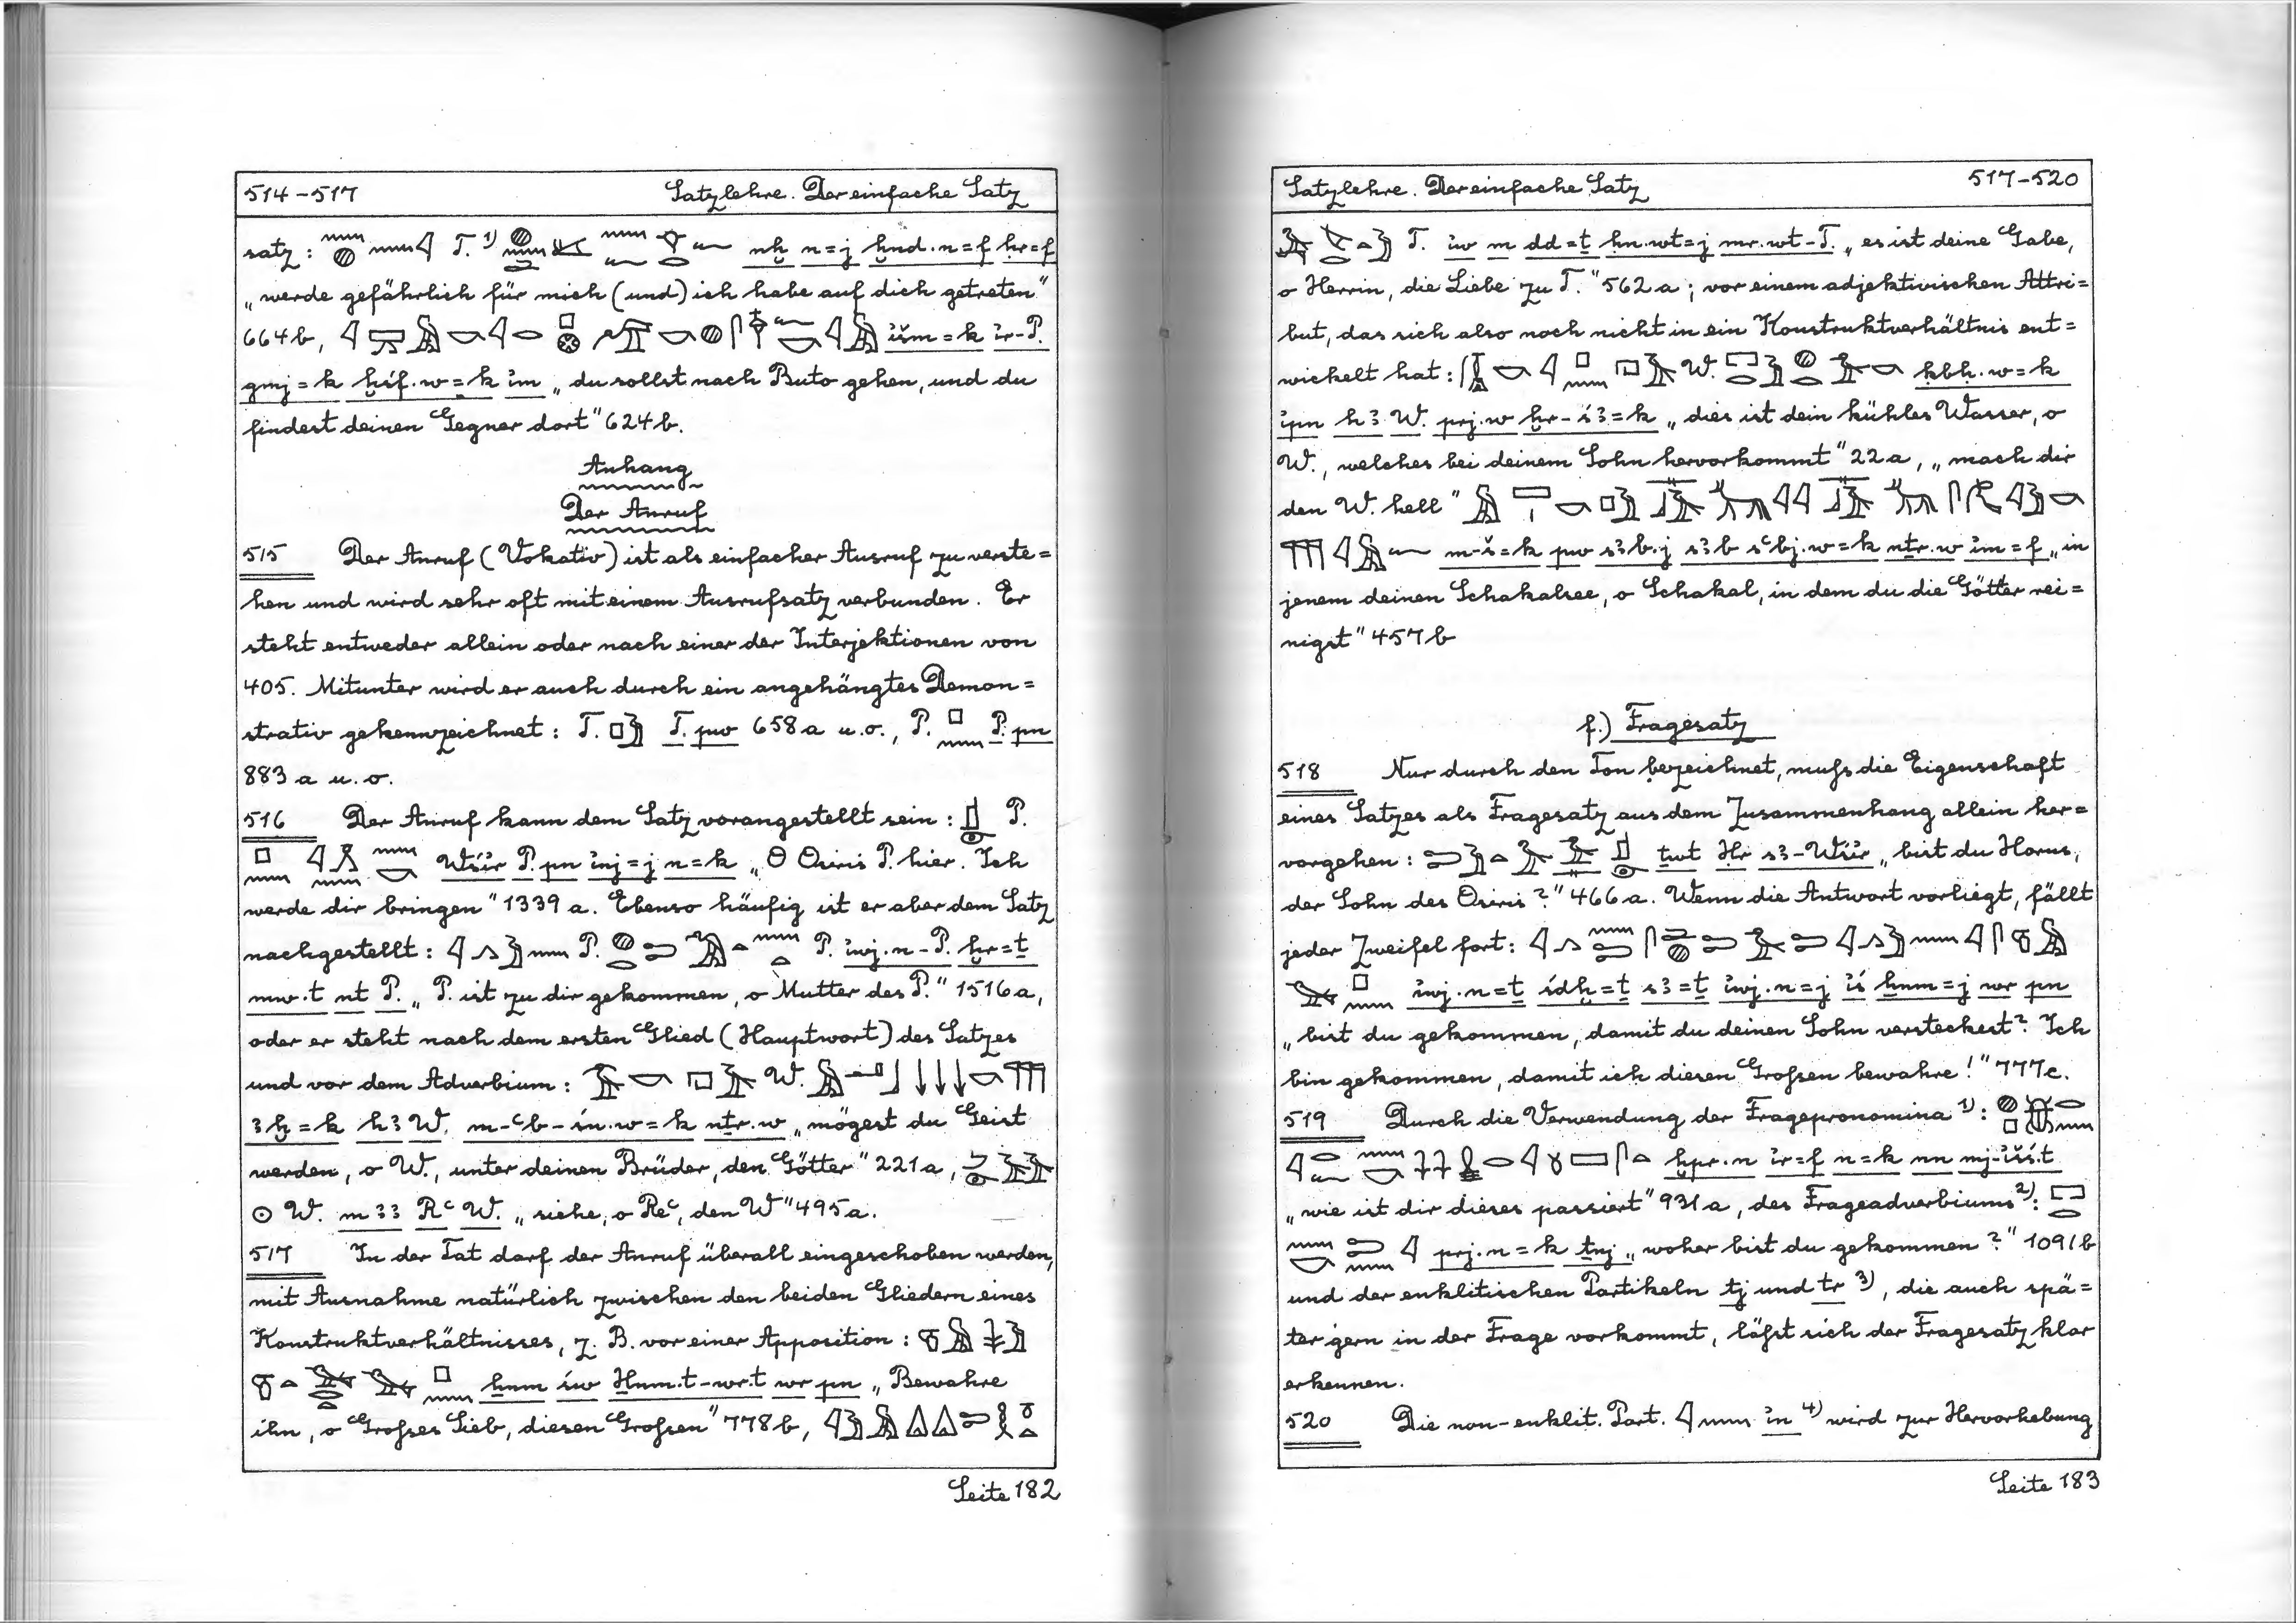 514-517 Satzlehre. Der einfache Satz
satz: T. ¹⁾ nḫ n=j ḫnd.n=f ḥr=f
„werde gefährlich für mich (und) ich habe auf dich getreten"
664b, išm=k ir-P.
gmj=k ḫśf.w=k im „du sollst nach Buto gehen, und du
findest deinen Gegner dort" 624b.
Anhang
Der Anruf
515 Der Anruf (Vokativ) ist als einfacher Ausruf zu verste=
hen und wird sehr oft mit einem Ausrufsatz verbunden. Er
steht entweder allein oder nach einer der Interjektionen von
405. Mitunter wird er auch durch ein angehängtes Demon=
strativ gekennzeichnet: T. T. pw 658a u.o., P. P. pn
883a u.o.
516 Der Anruf kann dem Satz vorangestellt sein: P.
Wśir P. pn inj=j n=k „O Osiris P. hier. Ich
werde dir bringen" 1339a. Ebenso häufig ist er aber dem Satz
nachgestellt: P. P. iwj.n-P. ḫr=ṯ
mw.t nt P. „P. ist zu dir gekommen, o Mutter des P." 1516a,
oder er steht nach dem ersten Glied (Hauptwort) des Satzes
und vor dem Adverbium: W.
ꜣḫ=k hꜣ W. m-ꜥb-śn.w=k nṯr.w „mögest du Geist
werden, o W., unter deinen Brüder, den Götter" 221a,
W. mꜣꜣ Rꜥ W. „siehe, o Reꜥ, den W" 495a.
517 In der Tat darf der Anruf überall eingeschoben werden,
mit Ausnahme natürlich zwischen den beiden Gliedern eines
Konstruktverhältnisses, z. B. vor einer Apposition:
ẖnm św H̱nm.t-wr.t wr pn „Bewahre
ihn, o Großes Sieb, diesen Großen" 778b,
Seite 182
Satzlehre. Der einfache Satz 517-520
T. iw m dd=ṯ ḥn.wt=j mr.wt-T. „es ist deine Gabe,
o Herrin, die Liebe zu T." 562a; vor einem adjektivischen Attri=
but, das sich also noch nicht in ein Konstruktverhältnis ent=
wickelt hat: W. ḳbḥ.w=k
ipn hꜣ W. prj.w ḫr-sꜣ=k „dies ist dein kühles Wasser, o
W., welches bei deinem Sohn hervorkommt" 22a, „mach dir
den W. hell"
m-š=k pw sꜣb.j sꜣb sꜥbj.w=k nṯr.w im=f „in
jenem deinen Schakalsee, o Schakal, in dem du die Götter rei=
nigst" 457b
f.) Fragesatz
518 Nur durch den Ton bezeichnet, muß die Eigenschaft
eines Satzes als Fragesatz aus dem Zusammenhang allein her=
vorgehen: ṯwt Ḥr sꜣ-Wśir „bist du Horus,
der Sohn des Osiris?" 466a. Wenn die Antwort vorliegt, fällt
jeder Zweifel fort:
iwj.n=ṯ śdḫ=ṯ sꜣ=ṯ iwj.n=j iś ẖnm=j wr pn
„bist du gekommen, damit du deinen Sohn versteckest? Ich
bin gekommen, damit ich diesen Großen bewahre!" 777c.
519 Durch die Verwendung der Fragepronomina ¹⁾:
ḫpr.n ir=f n=k nn mj-išś.t
„wie ist dir dieses passiert" 931a, des Frageadverbiums ²⁾:
prj.n=k ṯnj „woher bist du gekommen?" 1091b
und der enklitischen Partikeln tj und tr ³⁾, die auch spä=
ter gern in der Frage vorkommt, läßt sich der Fragesatz klar
erkennen.
520 Die non-enklit. Part. in ⁴⁾ wird zur Hervorhebung
Seite 183